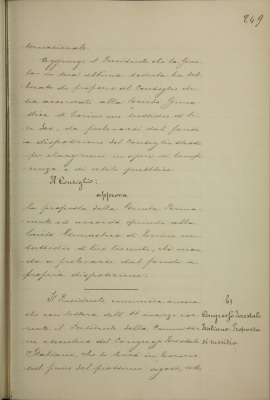 249
ternazionale.
Aggiunge il Presidente che la Giun-
ta in sua ultima seduta ha deli-
berato di proporre al Consiglio di
accordare alla Società Ginna-
stica di Torino un sussidio di li-
re 300, da prelevarsi dal fondo
a disposizione del Consiglio stesso
per elargizioni in opere di benefi-
cenza e di utile pubblico.
Il Consiglio:
approva
la proposta della Giunta Perma-
nente ed accorda quindi alla
Società Ginnastica di Torino un
sussidio di lire trecento, che man-
da a prelevarsi dal fondo a
propria disposizione.
Il Presidente comunica ancora
che con lettera dell' 11 marzo cor-
rente il Presidente della Commissio-
ne esecutiva del Congresso forestale
Italiano, che si terrà in
nei primi del prossimo agosto,
6)
Congresso forestale
Italiano. Proposta
di sussidio.